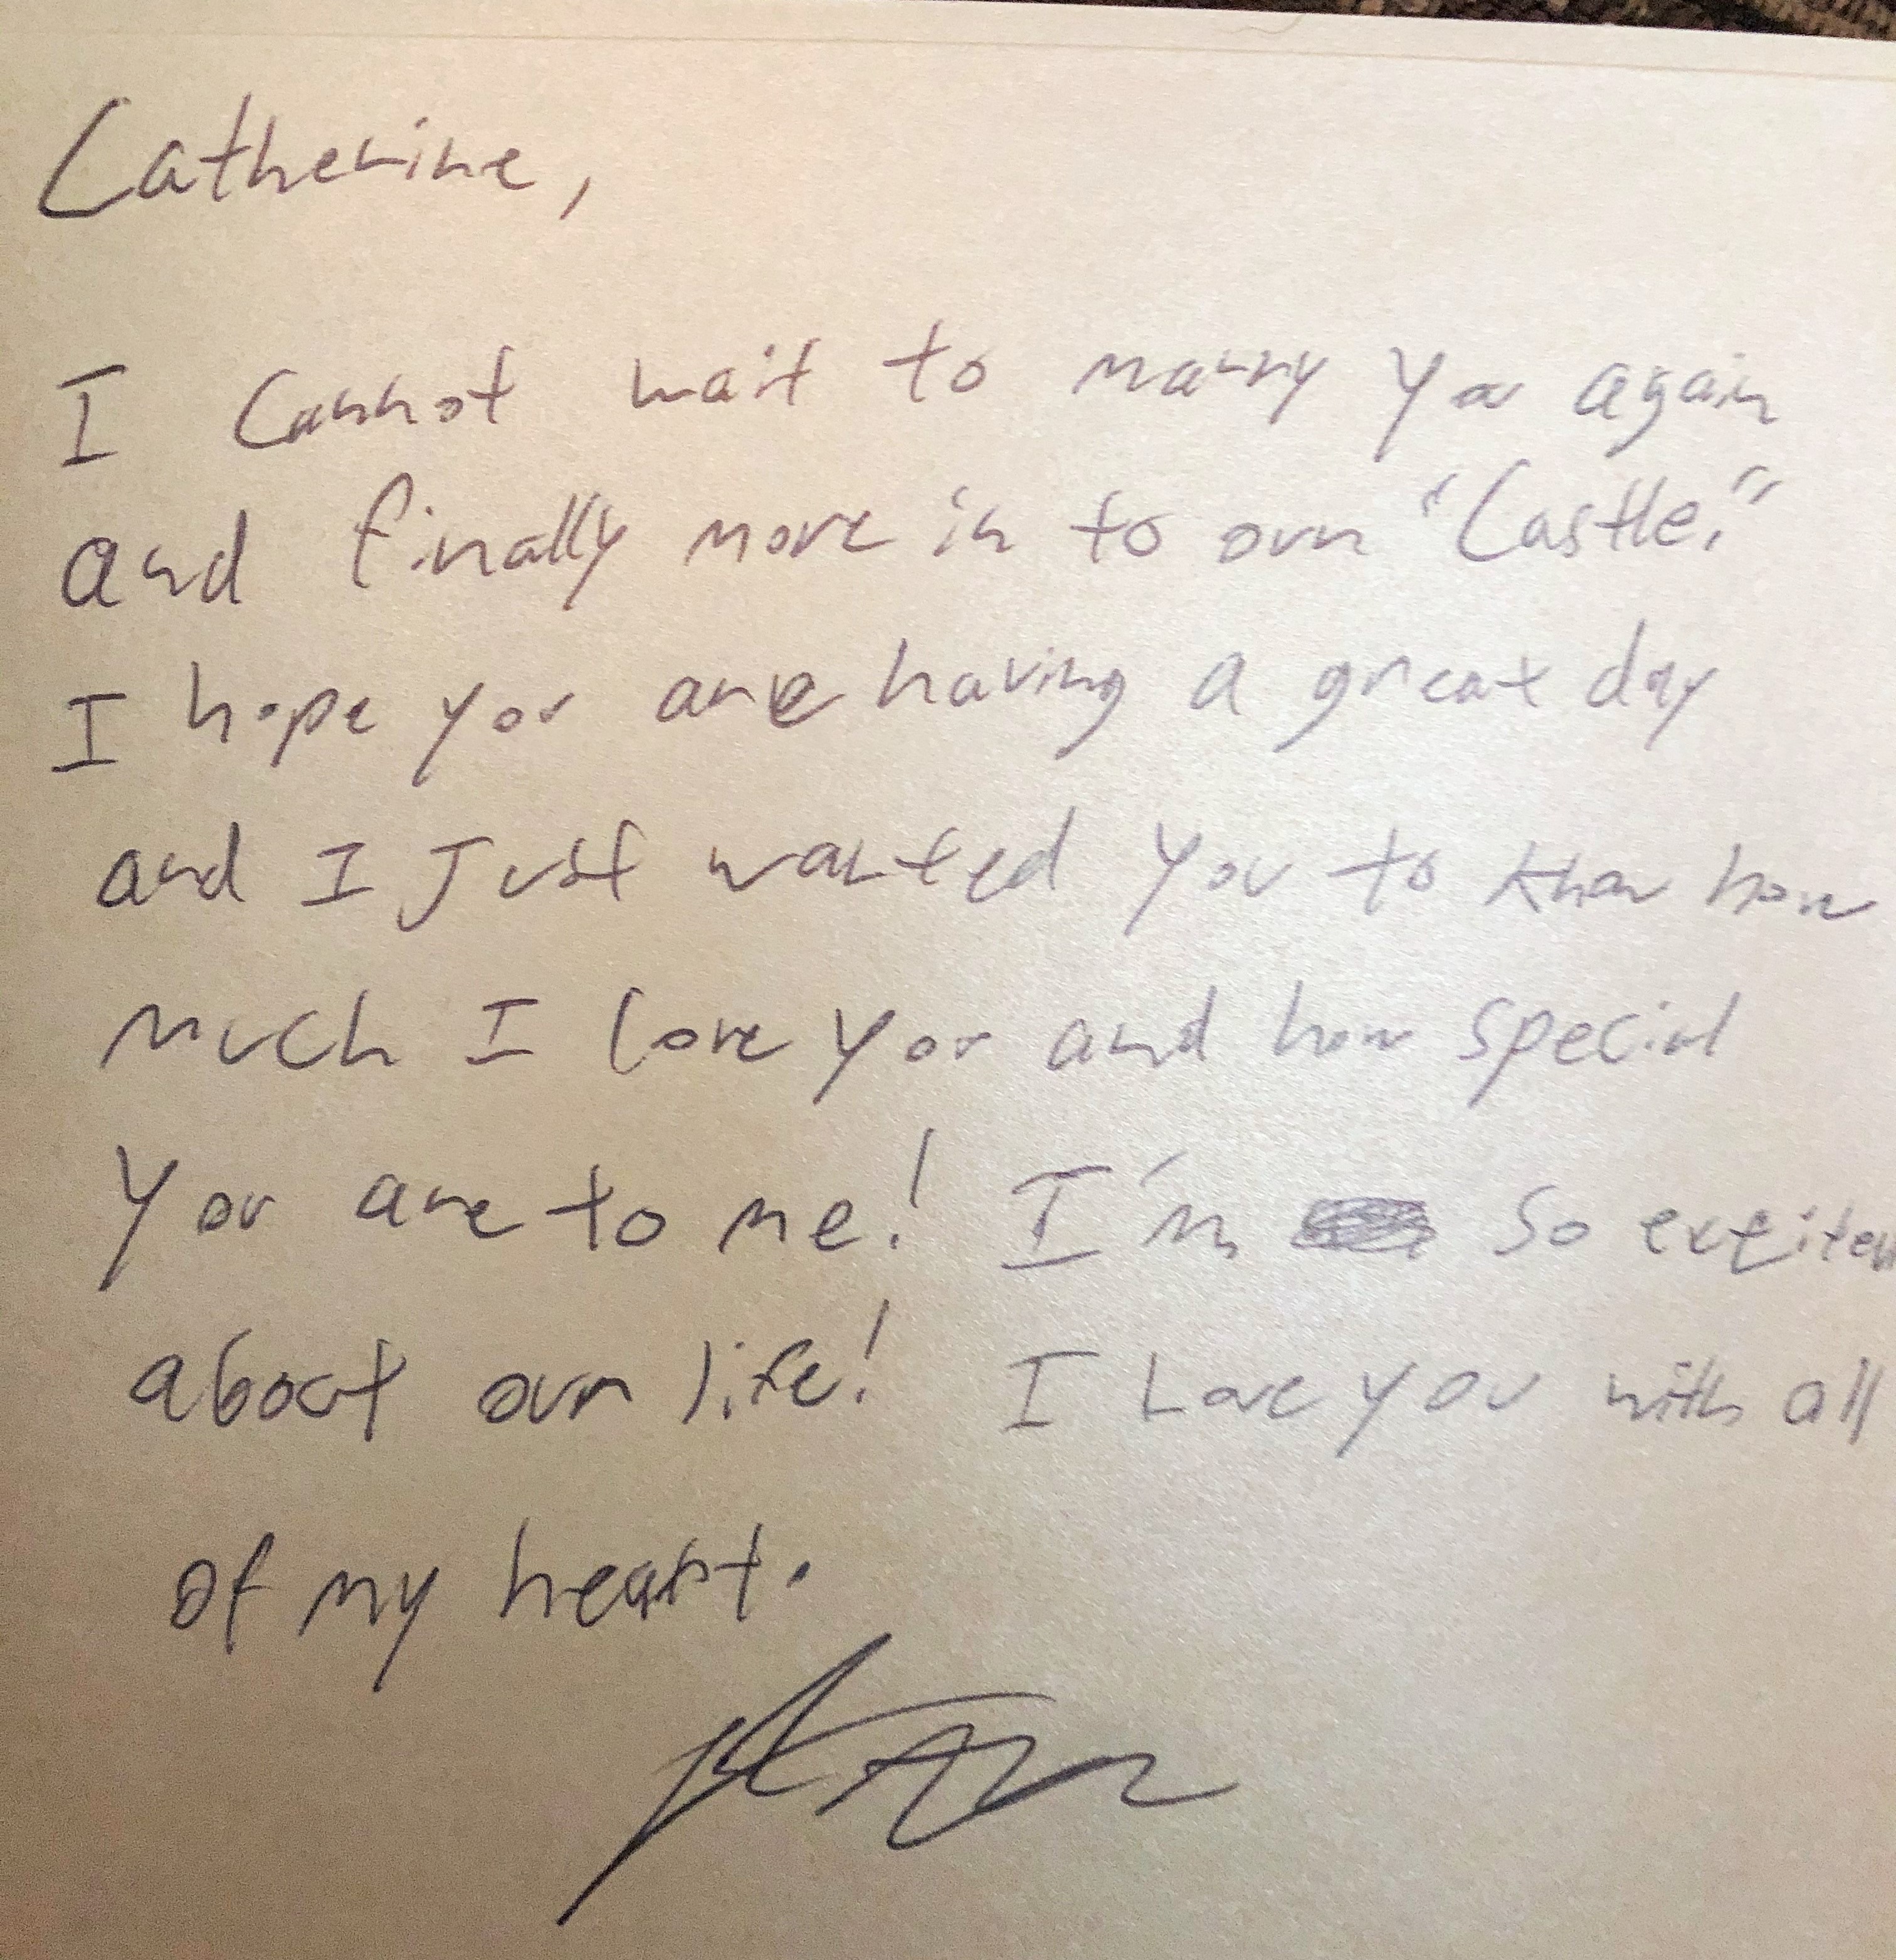 Catherine,
I cannot wait to marry you again
and finally move in to our "Castle."
I hope you are having a great day
and I Just wanted you to know how
much I love you and how special
you are to me! I'm so excited
about our life! I Love you with all
of my heart.